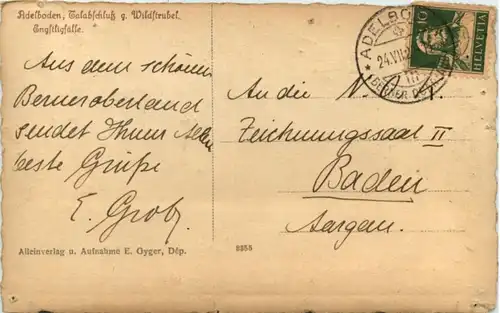 Adelboden, Talabschluß g. Wildstrubel.
Engstligfälle.
Aus dem schönen
Berneroberland
sendet Ihnen Allen
beste Grüße
E. Grob
Alleinverlag u. Aufnahme E. Gyger, Dép.
8358
An die
Zeichnungssaal II
Baden
Aargau.
ADELBO
24.VII
10
HELVETIA